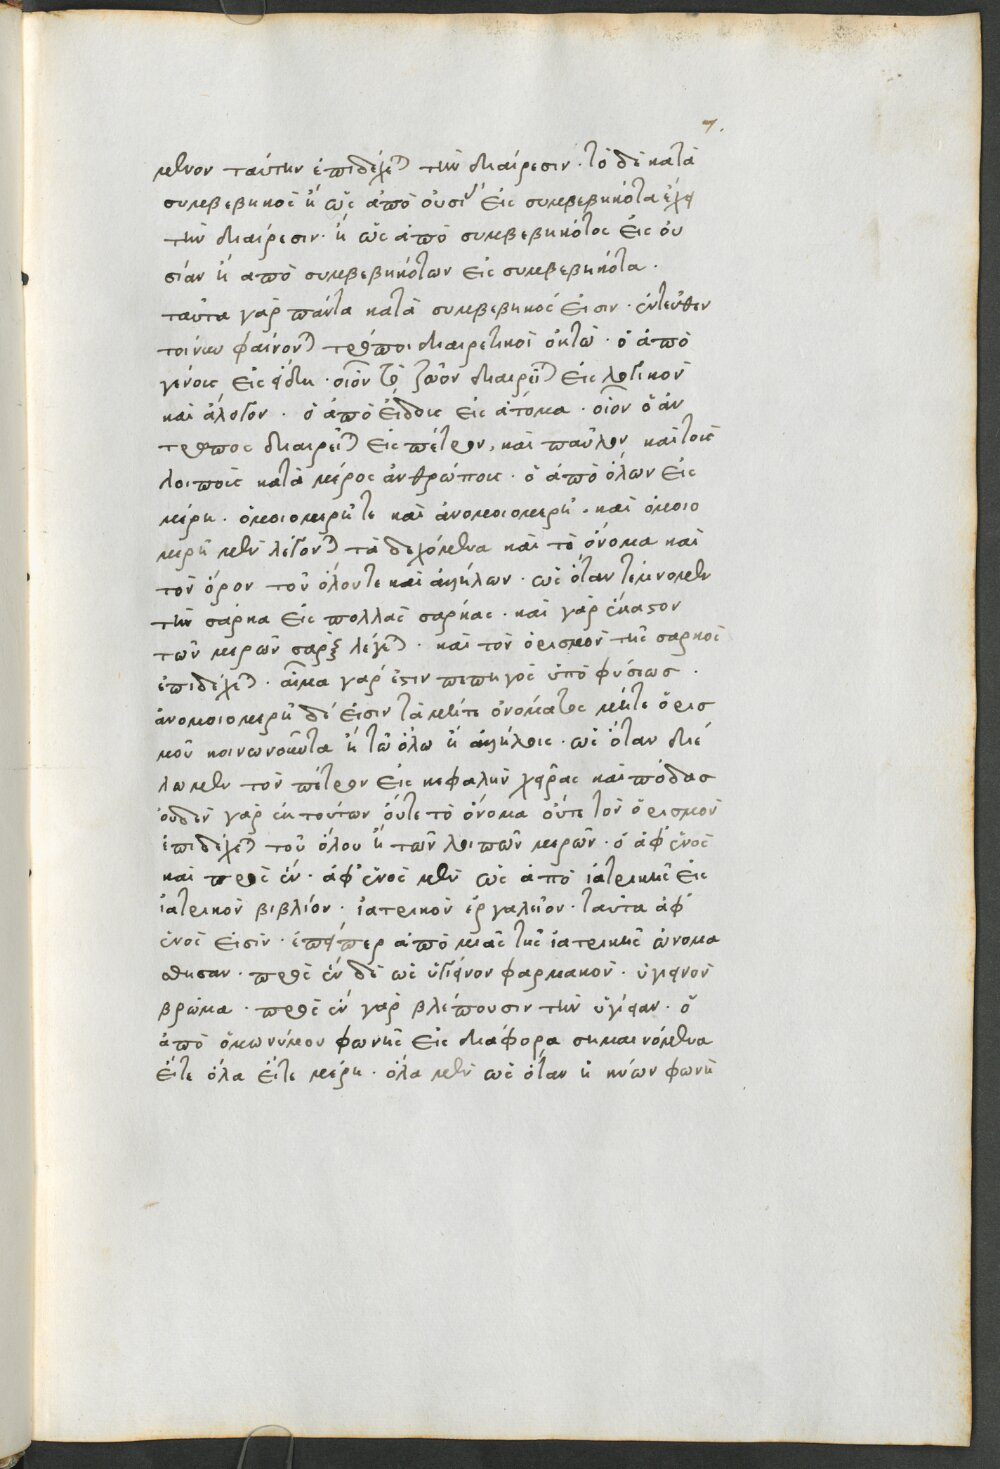 7.
μενον ταύτην ἐπιδέχεται τὴν διαίρεσιν· τὸ δὲ κατὰ
συμβεβηκὸς ἢ ὡς ἀπὸ οὐσίας εἰς συμβεβηκότα ἔχει
τὴν διαίρεσιν· ἢ ὡς ἀπὸ συμβεβηκότος εἰς οὐ
σίαν ἢ ἀπὸ συμβεβηκότων εἰς συμβεβηκότα·
ταῦτα γὰρ πάντα κατὰ συμβεβηκός εἰσιν· ἐντεῦθεν
τοίνυν φαίνονται τρόποι διαιρετικοὶ ὀκτώ· ὁ ἀπὸ
γένους εἰς εἴδη· οἷον τὸ ζῶον διαιρεῖται εἰς λογικὸν
καὶ ἄλογον· ὁ ἀπὸ εἴδους εἰς ἄτομα· οἷον ὁ ἄν
θρωπος διαιρεῖται εἰς πέτρον, καὶ παῦλον καὶ τοὺς
λοιποὺς κατὰ μέρος ἀνθρώπους· ὁ ἀπὸ ὅλων εἰς
μέρη· ὁμοιομερῆ τε καὶ ἀνομοιομερῆ· καὶ ὁμοιο
μερῆ μὲν λέγονται τὰ δεχόμενα καὶ τὸ ὄνομα καὶ
τὸν ὅρον τοῦ ὅλου τε καὶ ἀλλήλων· ὡς ὅταν τέμνομεν
τὴν σάρκα εἰς πολλὰς σάρκας· καὶ γὰρ ἕκαστον
τῶν μερῶν σὰρξ λέγεται· καὶ τὸν ὁρισμὸν τῆς σαρκὸς
ἐπιδέχεται· αἷμα γάρ ἐστιν πεπηγὸς ὑπὸ φύσεως·
ἀνομοιομερῆ δέ εἰσιν τὰ μήτε ὀνόματος μήτε ὁρισ
μοῦ κοινωνοῦντα ἢ τῶ ὅλω ἢ ἀλλήλοις· ὡς ὅταν διέ
λωμεν τὸν πέτρον εἰς κεφαλὴν χεῖρας καὶ πόδας
οὐδὲν γὰρ ἐκ τούτων οὔτε τὸ ὄνομα οὔτε τὸν ὁρισμὸν
ἐπιδέχεται τοῦ ὅλου ἢ τῶν λοιπῶν μερῶν· ὁ ἀφ' ἑνὸς
καὶ πρὸς ἕν· ἀφ' ἑνὸς μὲν ὡς ἀπὸ ἰατρικῆς εἰς
ἰατρικὸν βιβλίον· ἰατρικὸν ἐργαλεῖον· ταῦτα ἀφ'
ἑνός εἰσιν· ἐπείπερ ἀπὸ μιᾶς τῆς ἰατρικῆς ὠνομά
σθησαν· πρὸς ἓν δὲ ὡς ὑγιεινὸν φάρμακον· ὑγιεινὸν
βρῶμα· πρὸς ἓν γὰρ βλέπουσιν τὴν ὑγίειαν· ὁ
ἀπὸ ὁμωνύμου φωνῆς εἰς διάφορα σημαινόμενα
εἴτε ὅλα εἴτε μέρη· ὅλα μὲν ὡς ὅταν ἡ κύων φωνὴ